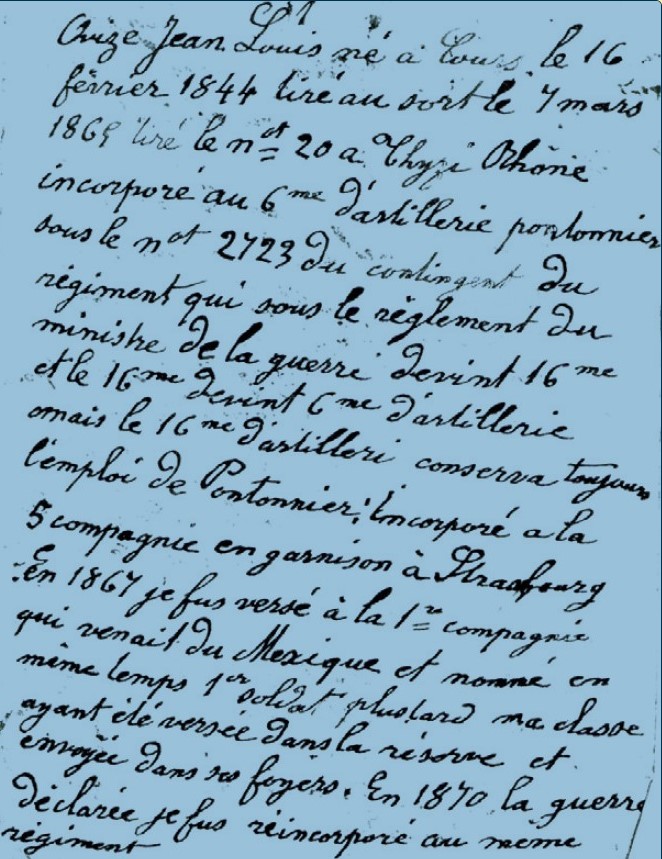 Avize Jean Louis né à Cours le 16
février 1844 tiré au sort le 7 mars
1865 tiré le n° 20 a Thyzi Rhône
incorporé au 6me d'artillerie pontonnier
sous le not 2723 du contingent du
régiment qui sous le règlement du
ministre de la guerre devint 16me
et le 16me devint 6me d'artillerie
mais le 16me d'artilleri conserva toujours
l'emploi de Pontonnier. Incorporé a la
5 compagnie en garnison à Strasbourg
En 1867 je fus versé à la 1re compagnie
qui venait du Mexique et nommé en
même temps 1er soldat plustard ma classe
ayant été versée dans la réserve et
envoyée dans ses foyers. En 1870 la guerre
déclarée je fus réincorporé au même
régiment